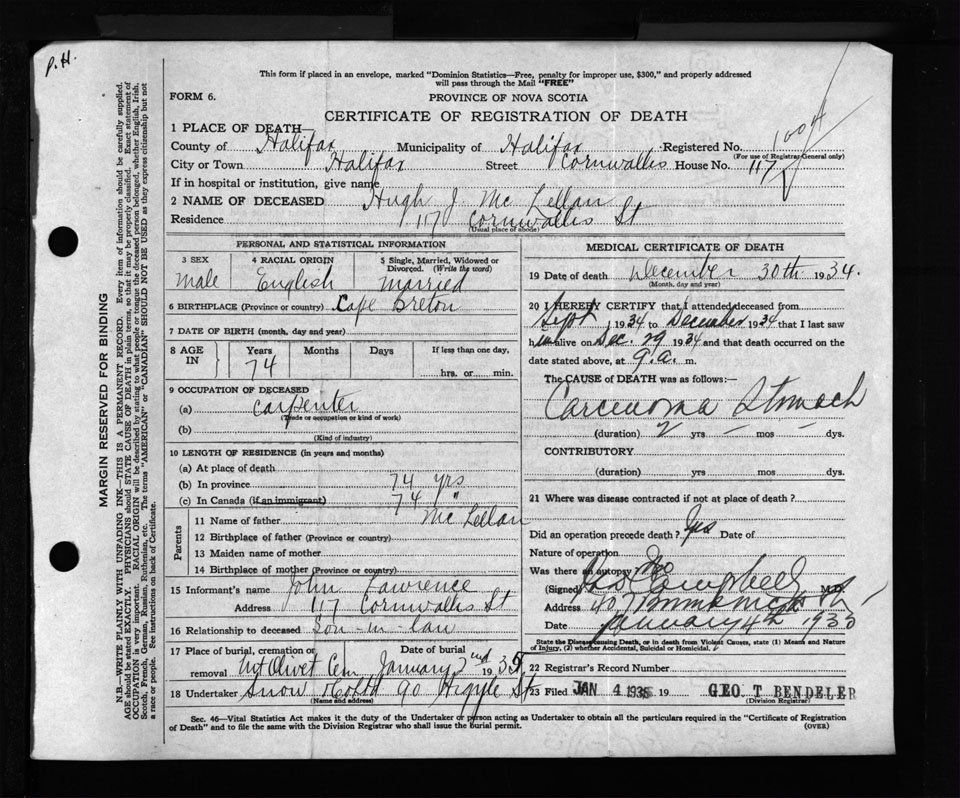 P.H.
This form if placed in an envelope, marked "Dominion Statistics—Free, penalty for improper use, $300," and properly addressed
will pass through the Mail "FREE"
FORM 6.
PROVINCE OF NOVA SCOTIA
CERTIFICATE OF REGISTRATION OF DEATH
1 PLACE OF DEATH—
County of Halifax Municipality of Halifax Registered No. 1004
(For use of Registrar-General only)
City or Town Halifax Street Cornwallis House No. 117
If in hospital or institution, give name
2 NAME OF DECEASED Hugh J. Mc Lellan
Residence 117 Cornwallis St
(Usual place of abode)
PERSONAL AND STATISTICAL INFORMATION
3 SEX 4 RACIAL ORIGIN 5 Single, Married, Widowed or
Divorced. (Write the word)
Male English Married
6 BIRTHPLACE (Province or country) Cape Breton
7 DATE OF BIRTH (month, day and year)
8 AGE IN Years Months Days If less than one day,
74 hrs. or min.
9 OCCUPATION OF DECEASED
(a) Carpenter
(Trade or occupation or kind of work)
(b)
(Kind of industry)
10 LENGTH OF RESIDENCE (in years and months)
(a) At place of death
(b) In province 74 yrs
(c) In Canada (if an immigrant) 74 "
Parents
11 Name of father Mc Lellan
12 Birthplace of father (Province or country)
13 Maiden name of mother
14 Birthplace of mother (Province or country)
15 Informant's name John Lawrence
Address 117 Cornwallis St
16 Relationship to deceased Son-in-law
17 Place of burial, cremation or Date of burial
removal Mt Olivet Cem January 2nd 1935
18 Undertaker Snow & Co Ltd 90 Argyle St
(Name and address)
MEDICAL CERTIFICATE OF DEATH
19 Date of death December 30th 1934.
(Month, day and year)
20 I HEREBY CERTIFY that I attended deceased from
Sept 1934 to December 1934 that I last saw
him alive on Dec. 29 1934 and that death occurred on the
date stated above, at 9 a. m.
The CAUSE of DEATH was as follows:—
Carcinoma Stomach
(duration) 2 yrs — mos — dys.
CONTRIBUTORY
(duration) yrs mos dys.
21 Where was disease contracted if not at place of death ?
Did an operation precede death? Yes Date of
Nature of operation
Was there an autopsy No
(Signed) Campbell M.D.
Address 407
Date January 4th 1935
State the Disease causing Death, or in death from Violent Causes, state (1) Means and Nature
of Injury, (2) whether Accidental, Suicidal or Homicidal.
22 Registrar's Record Number
23 Filed JAN 4 1935 19 GEO. T BENDELER
(Division Registrar)
Sec. 46—Vital Statistics Act makes it the duty of the Undertaker or person acting as Undertaker to obtain all the particulars required in the "Certificate of Registration
of Death" and to file the same with the Division Registrar who shall issue the burial permit.
(OVER)
MARGIN RESERVED FOR BINDING
N.B.—WRITE PLAINLY WITH UNFADING INK—THIS IS A PERMANENT RECORD. Every item of information should be carefully supplied.
AGE should be stated EXACTLY. PHYSICIANS should STATE CAUSE OF DEATH in plain terms, so that it may be properly classified. Exact statement of
OCCUPATION is very important. RACIAL ORIGIN will be described by stating to what people or tongue the deceased person belonged, whether English, Irish,
Scotch, French, German, Russian, Ruthenian, etc. The terms "AMERICAN" or "CANADIAN" SHOULD NOT BE USED as they express citizenship but not
a race or people. See instructions on back of Certificate.